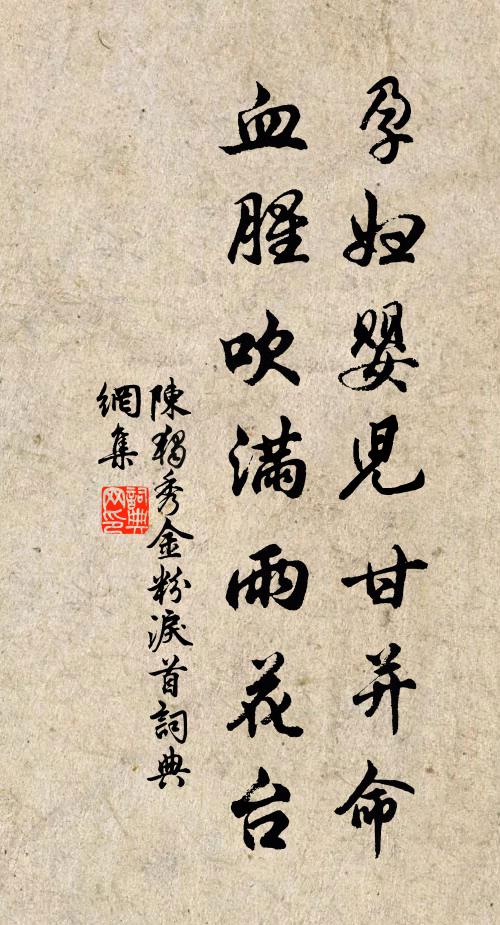 孕妇嬰児甘并命
血腥吹滿雨花台
陳獨秀金粉淚首詞典
網集
詞典
网印